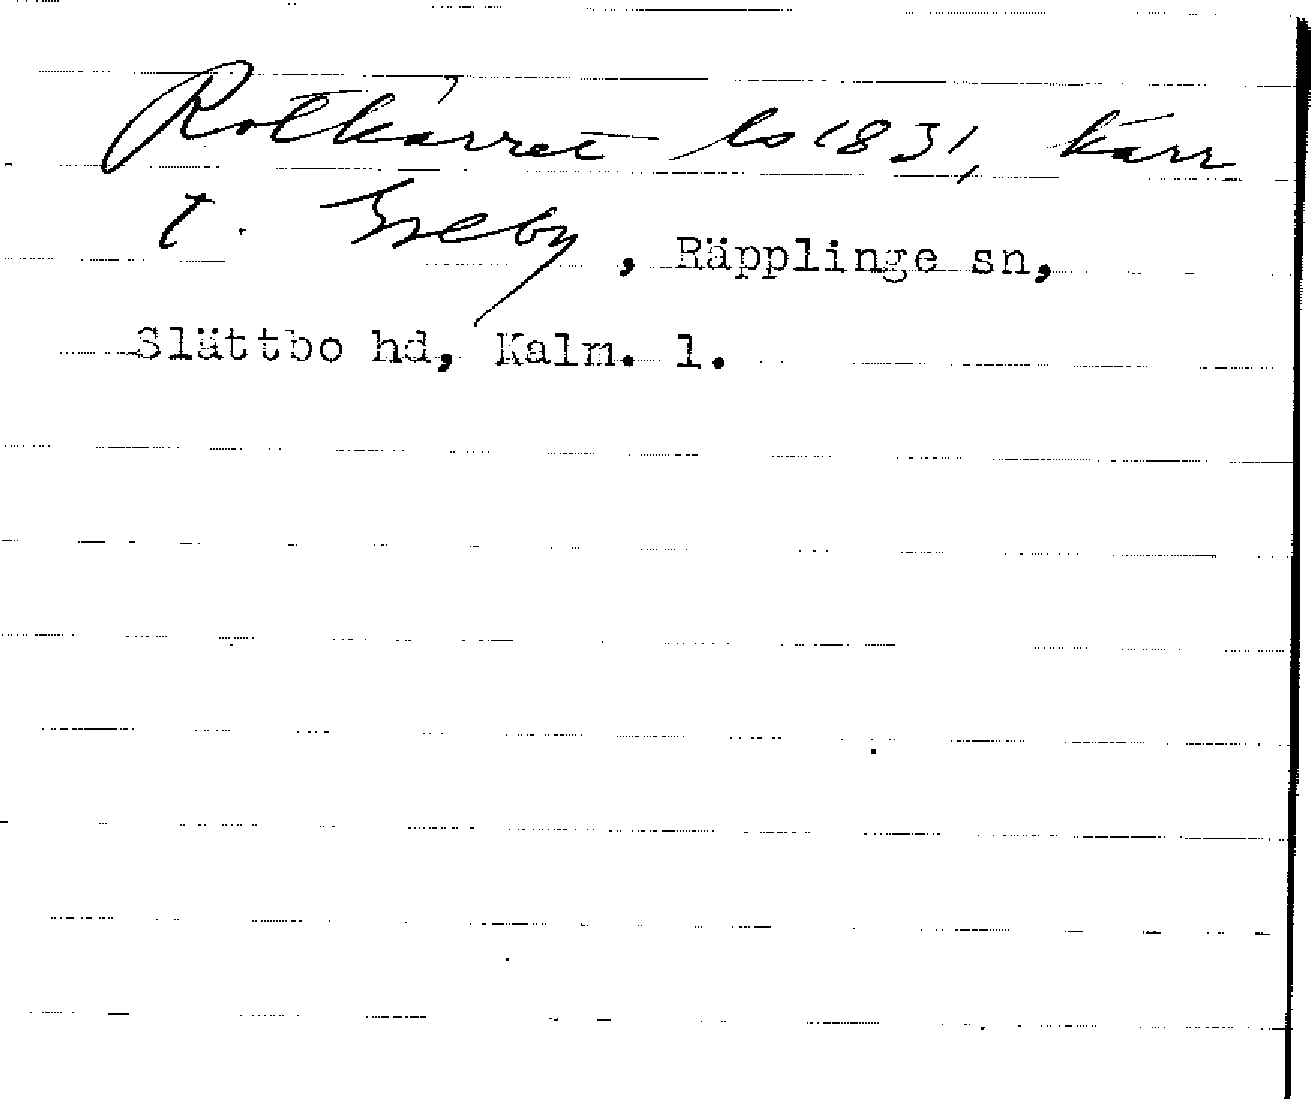 Rotkärret ls 1831, kärr
t. Greby, Räpplinge sn,
Slättbo hd, Kalm. l.